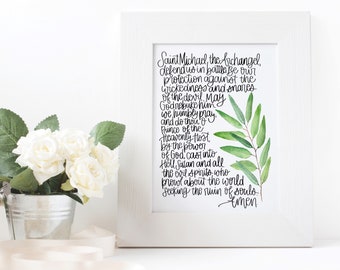 Saint Michael, the Archangel,
defend us in battle. Be our
protection against the
wickedness and snares
of the devil. May
God rebuke him
we humbly pray,
and do thou, O
Prince of the
Heavenly Host
by the power
of God, cast into
Hell, Satan and all
the evil spirits, who
prowl about the world
seeking the ruin of souls.
Amen